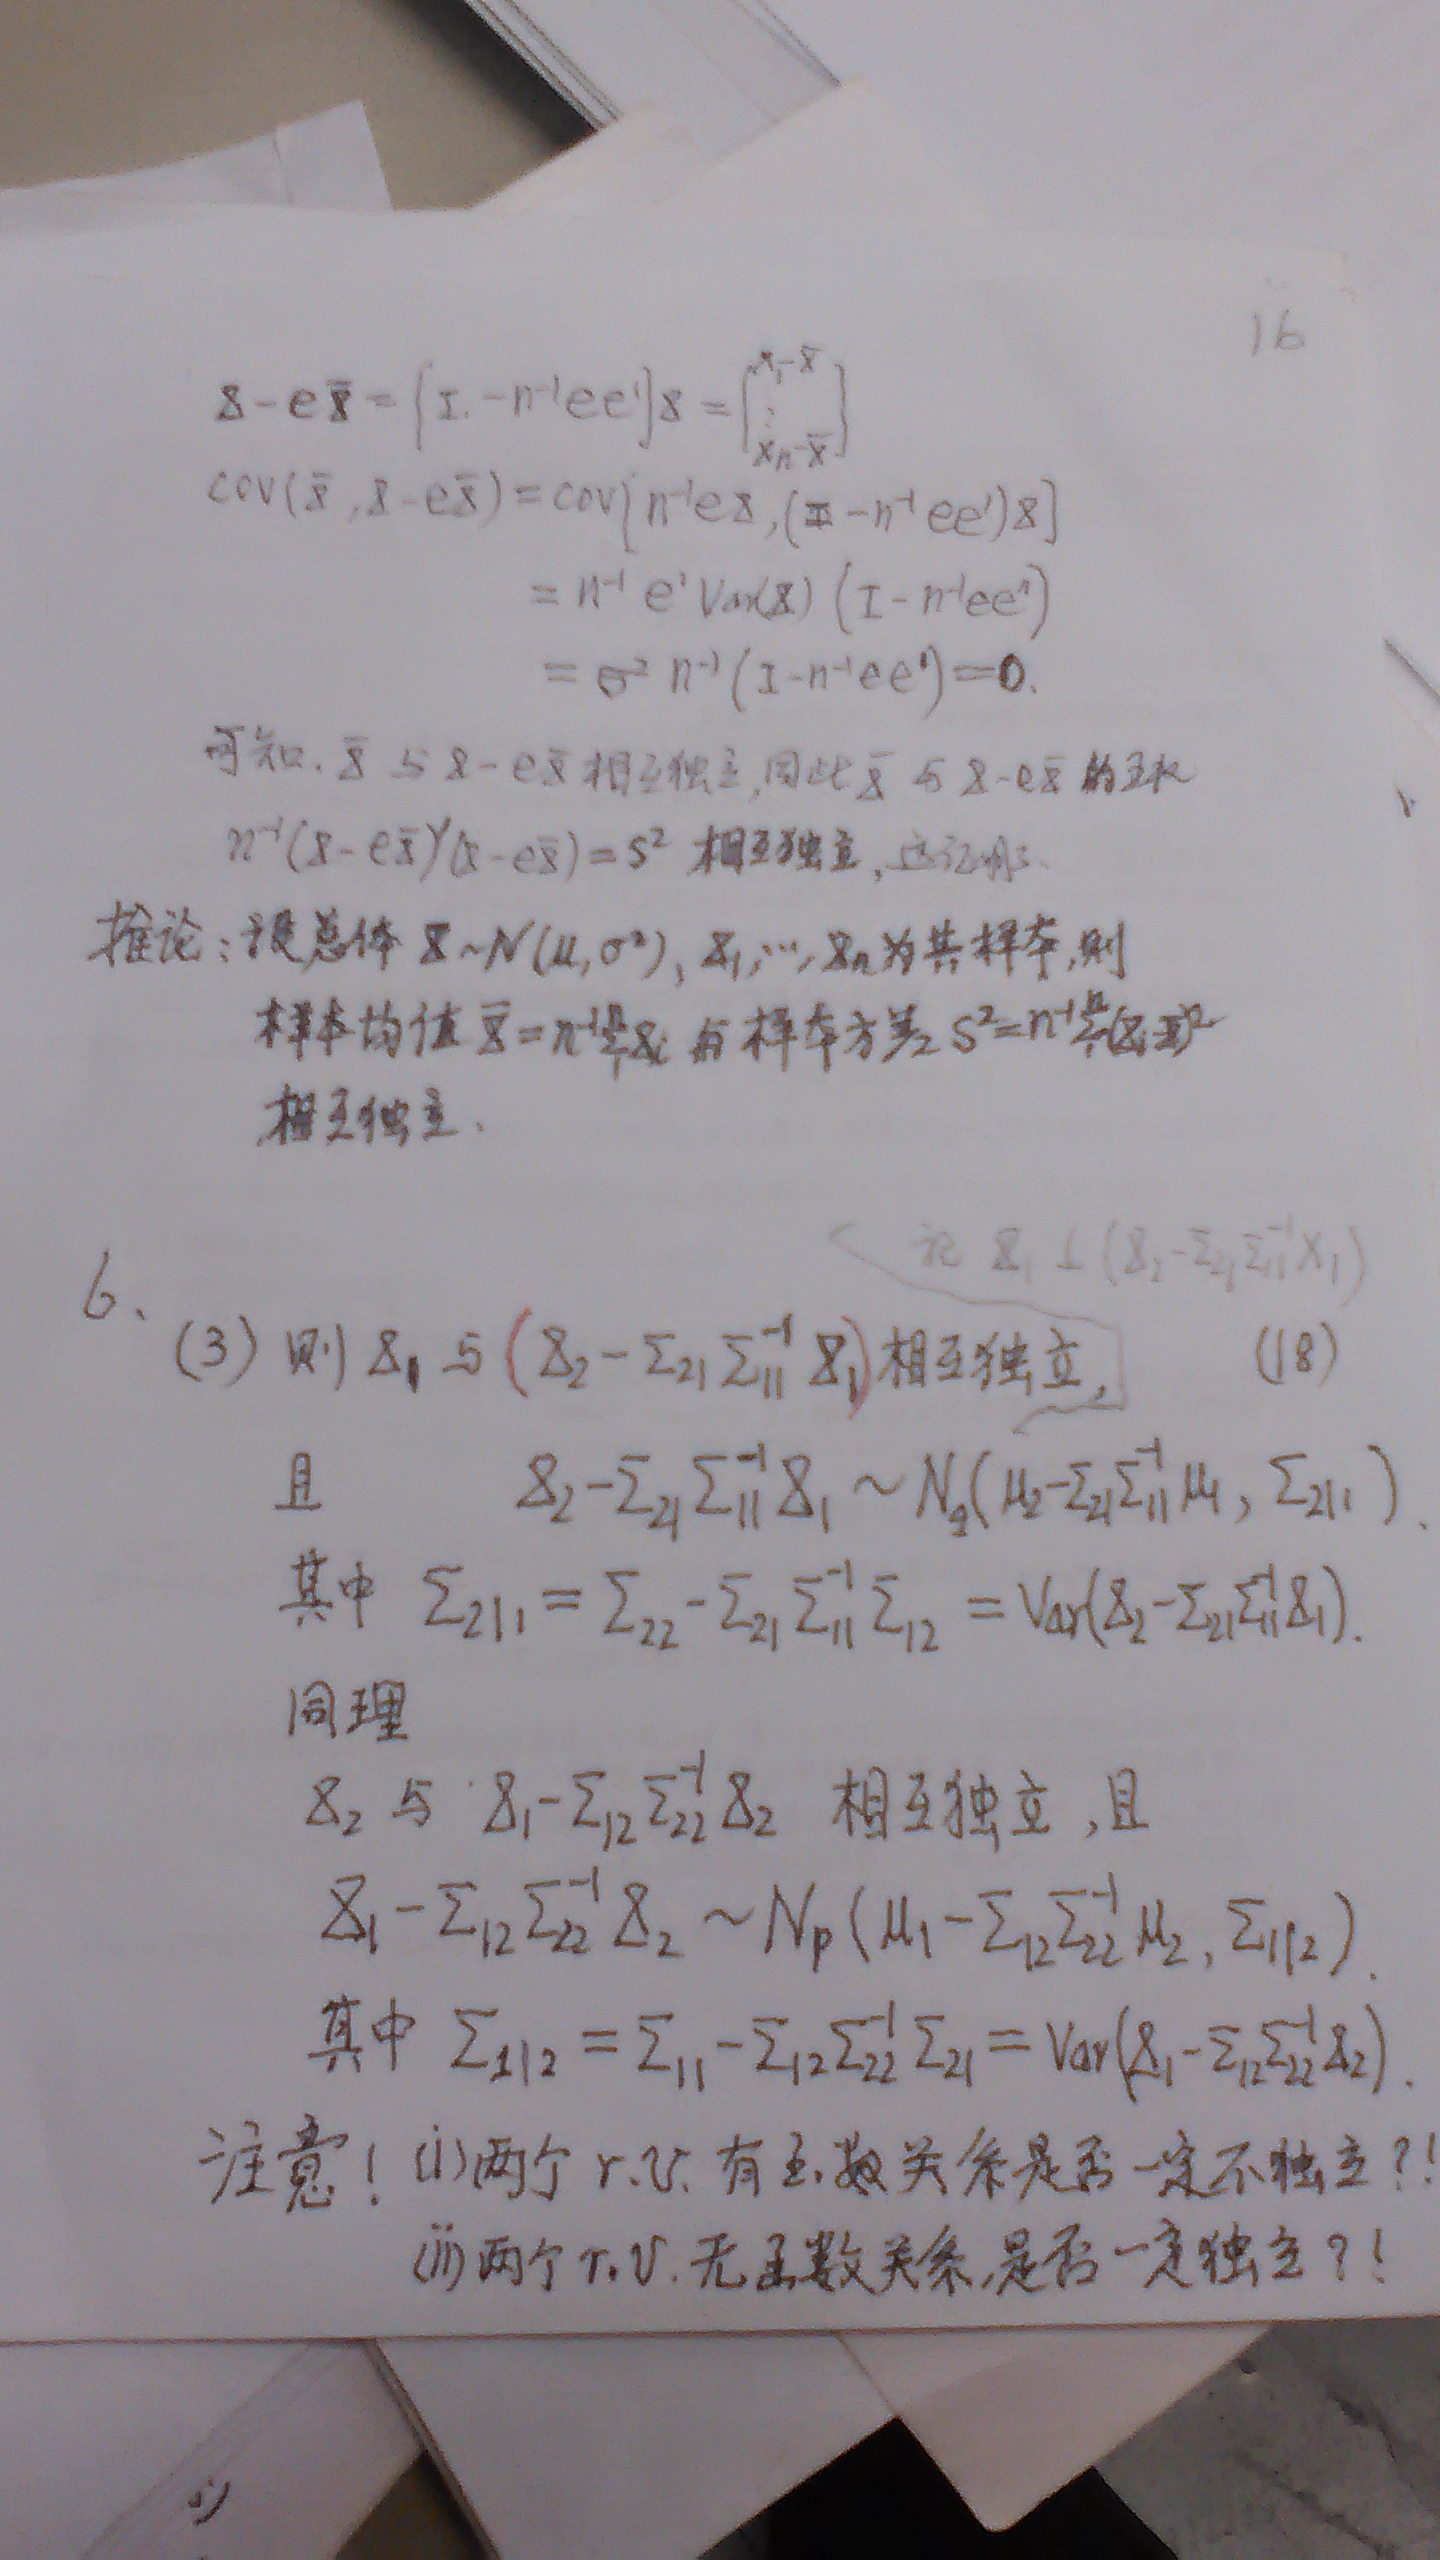 16
X - eX̄ = [I - n⁻¹ee']X = [x₁-x̄ ⋮ xₙ-x̄]
cov(X̄, X-eX̄) = cov[n⁻¹eX, (I-n⁻¹ee')X]
= n⁻¹e'Var(X)(I-n⁻¹ee')
= σ²n⁻¹(I-n⁻¹ee')=0.
可知.X̄与X-eX̄相互独立,因此X̄与X-eX̄的
n⁻¹(X-eX̄)'(X-eX̄)=S² 相互独立,
推论:设总体X~N(μ,σ²),X₁,…,Xₙ为其样本,则
样本均值X̄=n⁻¹∑₁ⁿXᵢ与样本方差S²=n⁻¹∑₁ⁿ(Xᵢ-X̄)²
相互独立.
记 X₁⊥(X₂-Σ₂₁Σ₁₁⁻¹X₁)
6.
(3) 则X₁与(X₂-Σ₂₁Σ₁₁⁻¹X₁)相互独立, (18)
且 X₂-Σ₂₁Σ₁₁⁻¹X₁~N_q(μ₂-Σ₂₁Σ₁₁⁻¹μ₁, Σ₂|₁).
其中 Σ₂|₁=Σ₂₂-Σ₂₁Σ₁₁⁻¹Σ₁₂=Var(X₂-Σ₂₁Σ₁₁⁻¹X₁).
同理
X₂与X₁-Σ₁₂Σ₂₂⁻¹X₂ 相互独立,且
X₁-Σ₁₂Σ₂₂⁻¹X₂~N_p(μ₁-Σ₁₂Σ₂₂⁻¹μ₂, Σ₁|₂).
其中 Σ₁|₂=Σ₁₁-Σ₁₂Σ₂₂⁻¹Σ₂₁=Var(X₁-Σ₁₂Σ₂₂⁻¹X₂).
注意!(i)两个r.v.有函数关系是否一定不独立?!
(ii)两个r.v.无函数关系,是否一定独立?!